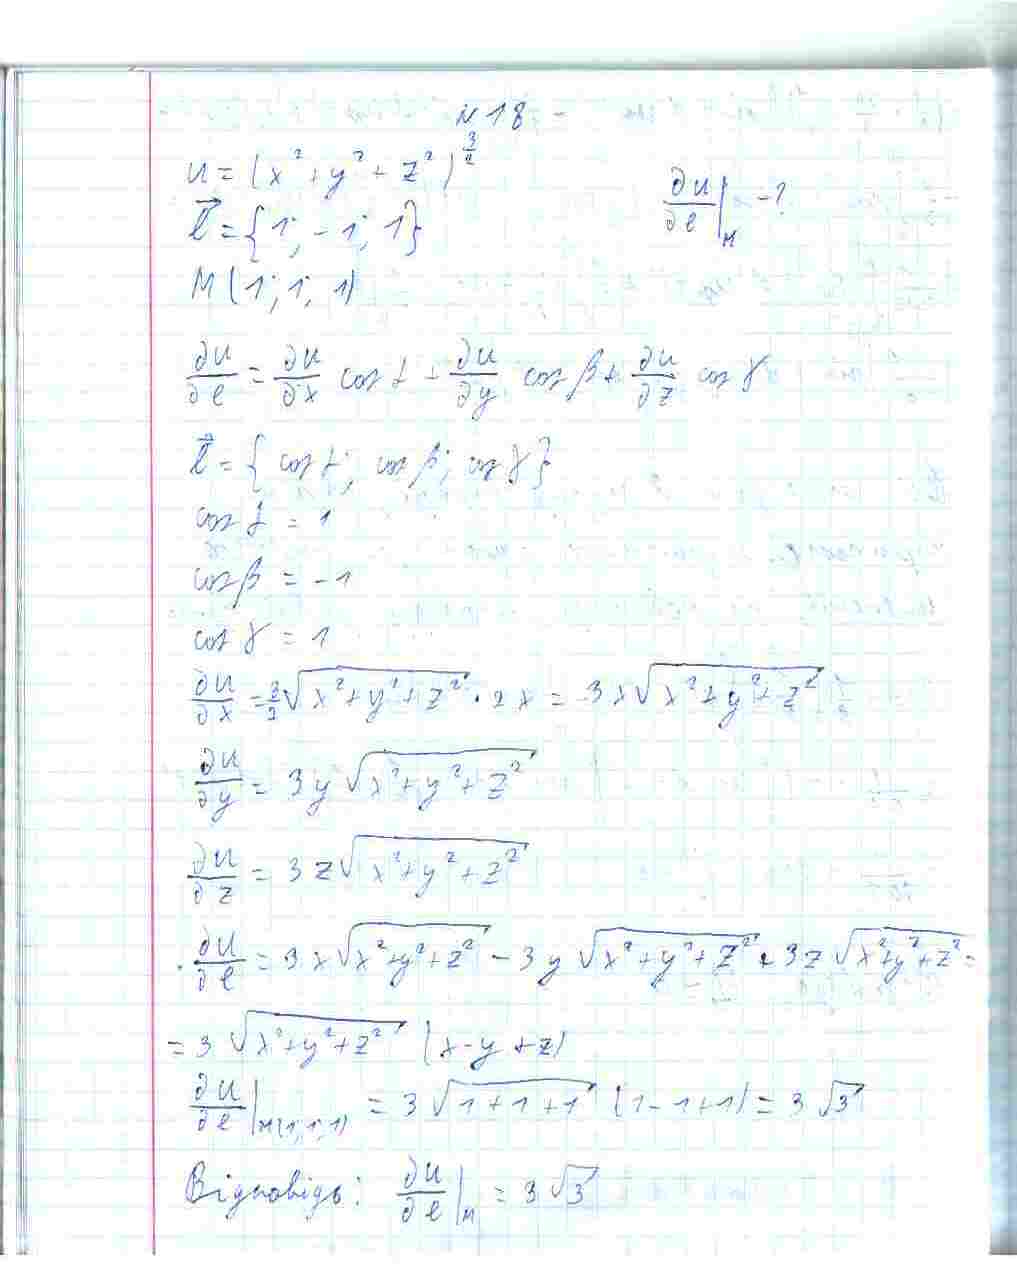 №18
u = (x² + y² + z²)^(3/2)
∂u/∂e |_M - ?
l⃗ = {1; -1; 1}
M(1; 1; 1)
∂u/∂e = ∂u/∂x cos α + ∂u/∂y cos β + ∂u/∂z cos γ
l⃗ = {cos α; cos β; cos γ}
cos α = 1
cos β = -1
cos γ = 1
∂u/∂x = 3/2 √(x² + y² + z²) · 2x = 3x √(x² + y² + z²)
∂u/∂y = 3y √(x² + y² + z²)
∂u/∂z = 3z √(x² + y² + z²)
∂u/∂e = 3x √(x² + y² + z²) - 3y √(x² + y² + z²) + 3z √(x² + y² + z²) =
= 3 √(x² + y² + z²) (x - y + z)
∂u/∂e |_M(1; 1; 1) = 3 √(1 + 1 + 1) (1 - 1 + 1) = 3 √3
Відповідь: ∂u/∂e |_M = 3 √3